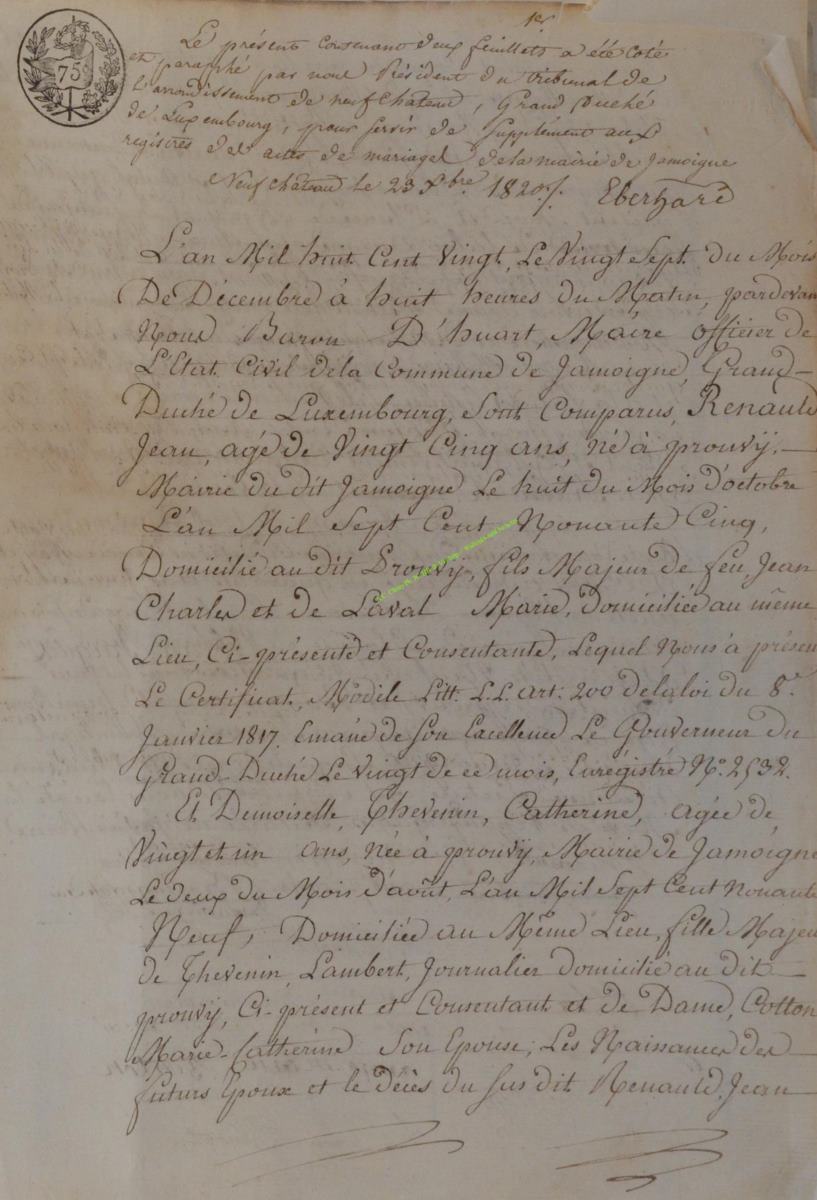 1er
75
Le présent contenant deux feuillets a été coté
et paraphé par nous Président du tribunal de
l'arrondissement de neufchateau, Grand Duché
de Luxembourg, pour servir de Supplément aux
registres des actes de mariages de la mairie de Jamoigne
Neufchateau le 23 Xbre 1820. Eberhard
L'an Mil huit Cent Vingt, Le Vingt Sept du Mois
De Décembre à huit heures du Matin, pardevan
Nous Baron D'huart, Maire officier de
L'Etat Civil dela Commune de Jamoigne, Grand-
Duché de Luxembourg, Sont Comparus, Renauld
Jean, agé de Vingt Cinq ans, né à prouvÿ,
Mairie du dit Jamoigne Le huit du Mois d'octobre
L'an Mil Sept Cent Nonante Cinq,
Domicilié au dit Prouvÿ, fils Majeur de feu Jean
Charles et de Laval Marie, Domiciliée au même
Lieu, Ci-présente et Consentante, Lequel Nous à présen
Le Certificat, Modèle Litt. L.L. art: 200 dela loi du 8.
Janvier 1817. Emané de Son Excellence Le Gouverneur du
Grand-Duché Le Vingt de ce mois, Enregistré No. 2532.
Et Demoiselle, Thevenin, Catherine, agée de
Vingt et un ans, Née à prouvÿ, Mairie de Jamoigne
Le deux du Mois d'août, L'an Mil Sept Cent Nonante
Neuf, Domiciliée au Même Lieu, fille Majeu
de Thevenin, Lambert, Journalier Domicilié au dit
prouvÿ, Ci-présent et Consentant et de Dame, Cotton
Marie-Catherine Son Epouse; Les Naissances des
futurs Epoux et le décès du Sus dit Renauld, Jean